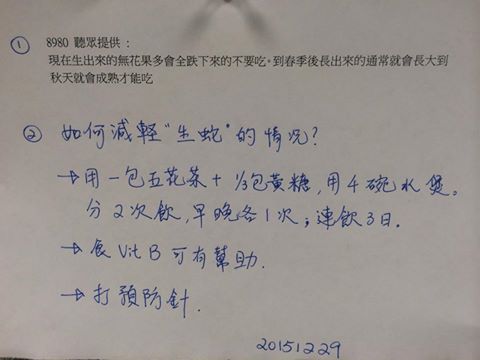 ① 8980 聽眾提供：
現在生出來的無花果多會全跌下來的不要吃。到春季後長出來的通常就會長大到
秋天就會成熟才能吃
② 如何減輕"生蛇"的情况？
→用一包五花茶+⅓包黃糖，用4碗水煲。
分2次飲，早晚各1次；連飲3日。
→食Vit B可有幫助.
→打預防針.
20151229